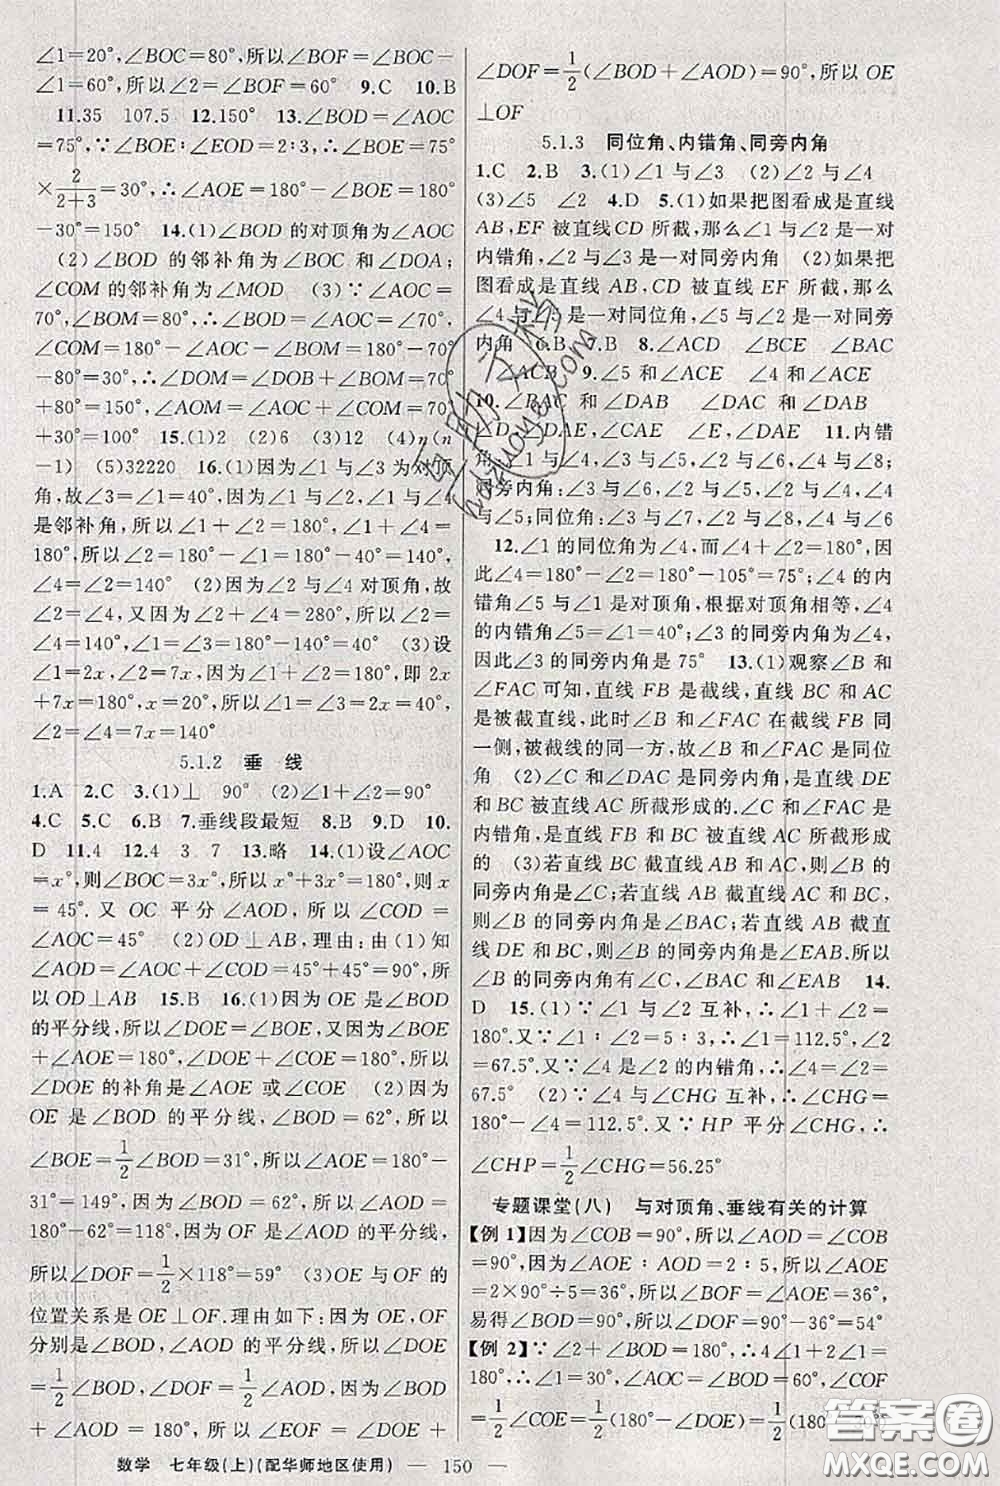 ∠1=20°,∠BOC=80°,所以∠BOF=∠BOC-
∠1=60°,所以∠2=∠BOF=60° 9.C 10.B
11.35 107.5 12.150° 13.∠BOD=∠AOC
=75°,∵∠BOE∶∠EOD=2∶3,∴∠BOE=75°
×2/(2+3)=30°,∴∠AOE=180°-∠BOE=180°
-30°=150° 14.(1)∠BOD的对顶角为∠AOC
(2)∠BOD 的邻补角为∠BOC 和∠DOA;
∠COM的邻补角为∠MOD (3)∵∠AOC=
70°,∠BOM=80°,∴∠BOD=∠AOC=∠70°,
∠COM=180°-∠AOC-∠BOM=180°-70°
-80°=30°,∴∠DOM=∠DOB+∠BOM=70°
+80°=150°,∠AOM=∠AOC+∠COM=70°
+30°=100° 15.(1)2 (2)6 (3)12 (4)n(n
-1) (5)32220 16.(1)因为∠1与∠3为对顶
角,故∠3=∠1=40°,因为∠1与∠2,∠1与∠4
是邻补角,所以∠1+∠2=180°,∠1+∠4=
180°,所以∠2=180°-∠1=180°-40°=140°,
∠4=∠2=140° (2)因为∠2与∠4对顶角,故
∠2=∠4,又因为∠2+∠4=280°,所以∠2=
∠4=140°,∠1=∠3=180°-140°=40° (3)设
∠1=2x,∠2=7x,因为∠1+∠2=180°,即2x
+7x=180°,x=20°,所以∠1=∠3=2x=40°,
∠2=∠4=7x=140°
5.1.2 垂 线
1.A 2.C 3.(1)⊥ 90° (2)∠1+∠2=90°
4.C 5.C 6.B 7.垂线段最短 8.B 9.D 10.
D 11.4 12.4 3 7 13.略 14.(1)设∠AOC
=x°,则∠BOC=3x°,所以x°+3x°=180°,则x
=45°.又 OC 平分∠AOD,所以∠COD=
∠AOC=45° (2)OD⊥AB,理由:由(1)知
∠AOD=∠AOC+∠COD=45°+45°=90°,所
以OD⊥AB 15.B 16.(1)因为OE是∠BOD
的平分线,所以∠DOE=∠BOE,又因为∠BOE
+∠AOE=180°,∠DOE+∠COE=180°,所以
∠DOE的补角是∠AOE或∠COE (2)因为
OE是∠BOD 的平分线,∠BOD=62°,所以
∠BOE=1/2∠BOD=31°,所以∠AOE=180°-
31°=149°,因为∠BOD=62°,所以∠AOD=
180°-62°=118°,因为OF是∠AOD的平分线,
所以∠DOF=1/2×118°=59° (3)OE与OF的
位置关系是OE⊥OF.理由如下:因为OE,OF
分别是∠BOD,∠AOD的平分线,所以∠DOE=
1/2∠BOD,∠DOF=1/2∠AOD,因为∠BOD
+∠AOD=180°,所以∠EOF=∠DOE+
∠DOF=1/2(∠BOD+∠AOD)=90°,所以OE
⊥OF
5.1.3 同位角、内错角、同旁内角
1.C 2.B 3.(1)∠1与∠3 (2)∠2与∠4
(3)∠5 ∠2 4.D 5.(1)如果把图看成是直线
AB,EF被直线CD所截,那么∠1与∠2是一对
内错角,∠3与∠4是一对同旁内角 (2)如果把
图看成是直线AB,CD被直线EF所截,那么
∠4与∠5是一对同位角,∠5与∠2是一对同旁
内角 6.B 7.B 8.∠ACD ∠BCE ∠BAC
∠ACB 9.∠5和∠ACE ∠4和∠ACE
10.∠BAC和∠DAB ∠DAC和∠DAB
∠D ∠DAE,∠BAE ∠E,∠DAE 11.内错
角:∠1与∠4,∠3与∠5,∠2与∠6,∠4与∠8;
同旁内角:∠3与∠6,∠2与∠5,∠2与∠4,∠4
与∠5;同位角:∠3与∠7,∠2与∠8,∠4与∠6
12.∠1的同位角为∠4,而∠4+∠2=180°,因
此∠4=180°-∠2=180°-105°=75°;∠4的内
错角∠5与∠1是对顶角,根据对顶角相等,∠4
的内错角∠5=∠1=40°;∠3的同旁内角为∠4,
因此∠3的同旁内角是75° 13.(1)观察∠B和
∠FAC可知,直线FB是截线,直线BC和AC
是被截直线,此时∠B和∠FAC在截线FB同
一侧,被截直线的同一方,故∠B和∠FAC是同位角
(2)∠C和∠DAC是同旁内角,是直线DE
和BC被直线AC所截形成的.∠C和∠FAC是
内错角,是直线FB和BC被直线AC所截形成
的 (3)若直线BC截直线AB和AC,则∠B的
同旁内角是∠C;若直线AB截直线AC和BC,
则∠B的同旁内角是∠BAC;若直线AB截直
线DE和BC,则∠B的同旁内角是∠EAB.所以
∠B的同旁内角有∠C,∠BAC和∠EAB 14.
D 15.(1)∵∠1与∠2互补,∴∠1+∠2=
180°.又∵∠1∶∠2=5∶3,∴∠1=112.5°,∠2
=67.5°.又∵∠4是∠2的内错角,∴∠4=∠2=
67.5° (2)∵∠4与∠CHG互补,∴∠CHG=
180°-∠4=112.5°.又∵HP平分∠CHG,∴
∠CHP=1/2∠CHG=56.25°
专题课堂(八) 与对顶角、垂线有关的计算
【例1】因为∠COB=90°,所以∠AOC=∠COB
=90°,因为∠AOE∶AOD=2∶5,所以∠AOE=
2×90°÷5=36°,所以∠BOF=∠AOE=36°,
易得∠BOD=90°,所以∠DOF=90°-36°=54°
【例2】∵∠2+∠BOD=180°,∴4∠1+2∠1=
180°,∴∠1=30°,∠AOC=∠BOD=∠COF
=1/2∠COE=1/2(180°-∠DOE)=1/2(180°
数学 七年级(上)(配华师地区使用) — 150 —
答案圈